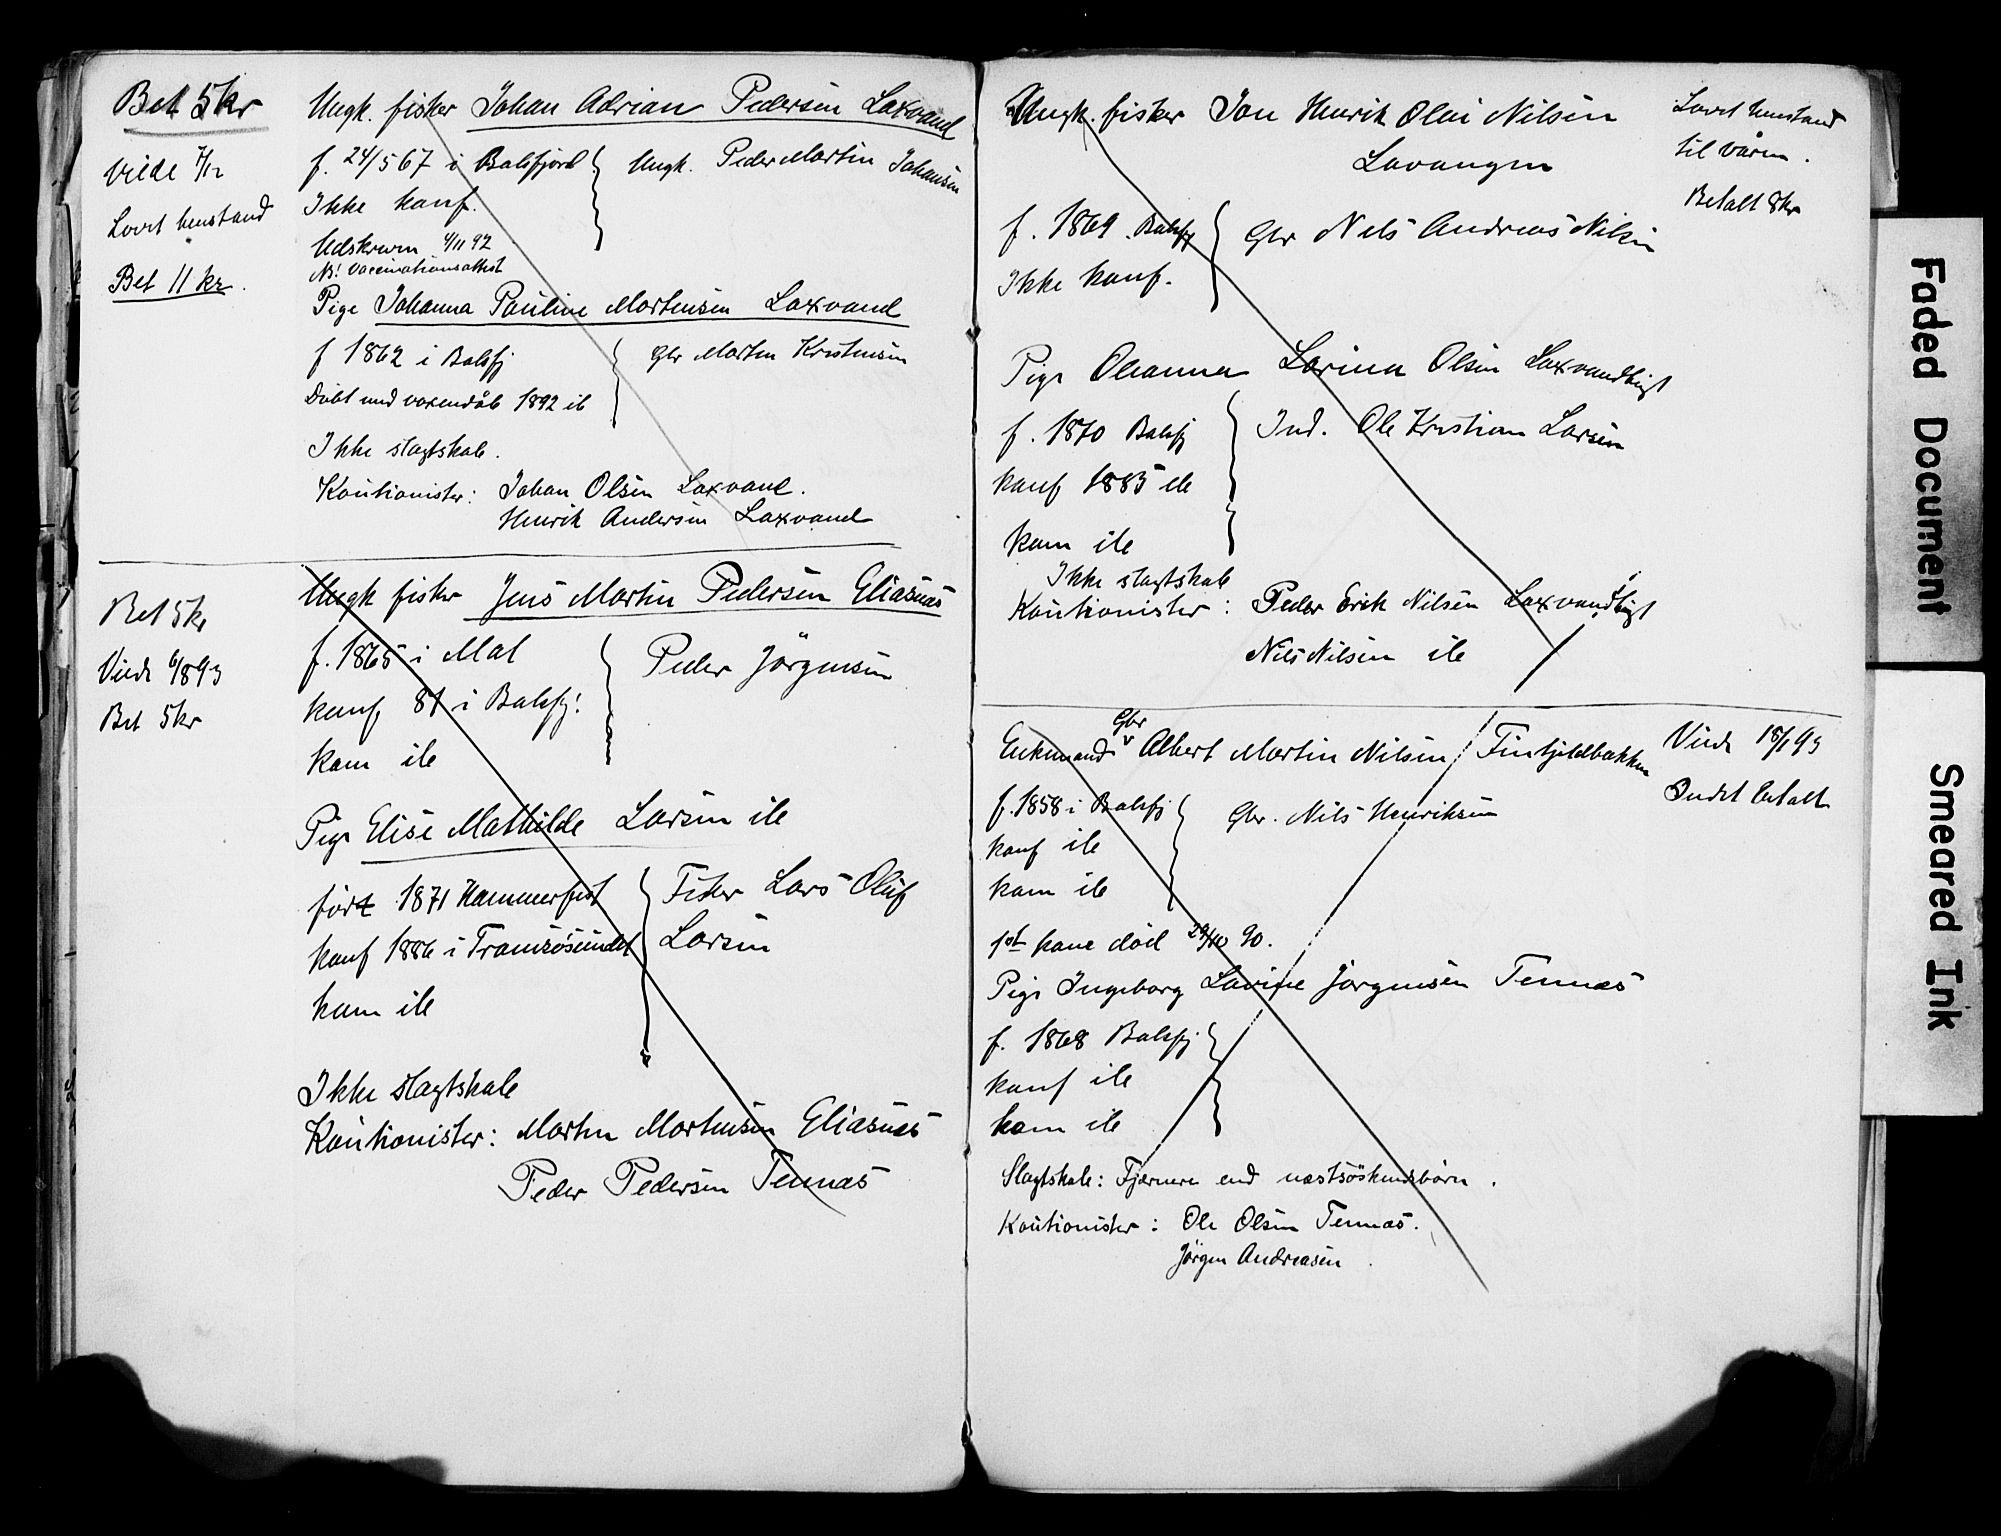 Bet 5 kr
Viede 7/12
Lovet henstand
Bet 11 kr.
Ungk. fisker Johan Adrian Pedersen Laxvand
f. 24/5 67 i Balsfjord
Ungk. Peder Martin Johansen
Ikke konf.
Udskreven 4/11 92
NB! Vaccinationsattest
Pige Johanna Pauline Mortensen Laxvand
f 1862 i Balsfj
Gbr Morten Kristensen
Döbt med voxendåb 1892 ib
Ikke slægtskab.
Kautionister: Johan Olsen Laxvand.
Henrik Andersen Laxvand
Bet 5 kr
Viede 6/8 93
Bet 5 kr
Ungk fisker Jens Martin Pedersen Eliasnæs
f. 1865 i Mal
Peder Jörgensen
konf 81 i Balsfj.
kom ib
Pige Elise Mathilde Larsen ib
född 1871 Hammerfest
Fisker Lars Oluf
Larsen
konf 1886 i Tromsösundet
kom ib
Ikke slægtskab
Kautionister: Morten Mortensen Eliasnæs
Peder Pedersen Tennæs
Ungk. fisker Jon Henrik Olai Nilsen
Lavangen
Lovet henstand
til våren.
Betalt 8 kr
f. 1869 Balsfj
Gbr Nils Andreas Nilsen
Ikke konf.
Pige Oleanna Larina Olsen Laxvandbugt
f. 1870 Balsfj
Ind. Ole Kristian Larsen
konf 1885 ib
kom ib
Ikke slægtskab
Kautionister: Peder Erik Nilsen Laxvandbugt
Nils Nilsen ib
Enkemand Gbr Albert Martin Nilsen Finfjeldbakken
Viede 18/1 93
Intet betalt
f. 1858 i Balsfj
Gbr. Nils Henriksen
konf ib
kom ib
1st kone död 29/10 90.
Pige Ingeborg Lavine Jörgensen Tennæs
f. 1868 Balsfj
konf ib
kom ib
Slægtskab: Fjærnere end næstsöskendebörn.
Kautionister: Ole Olsen Tennæs.
Jörgen Andreasen
Faded Document
Smeared Ink